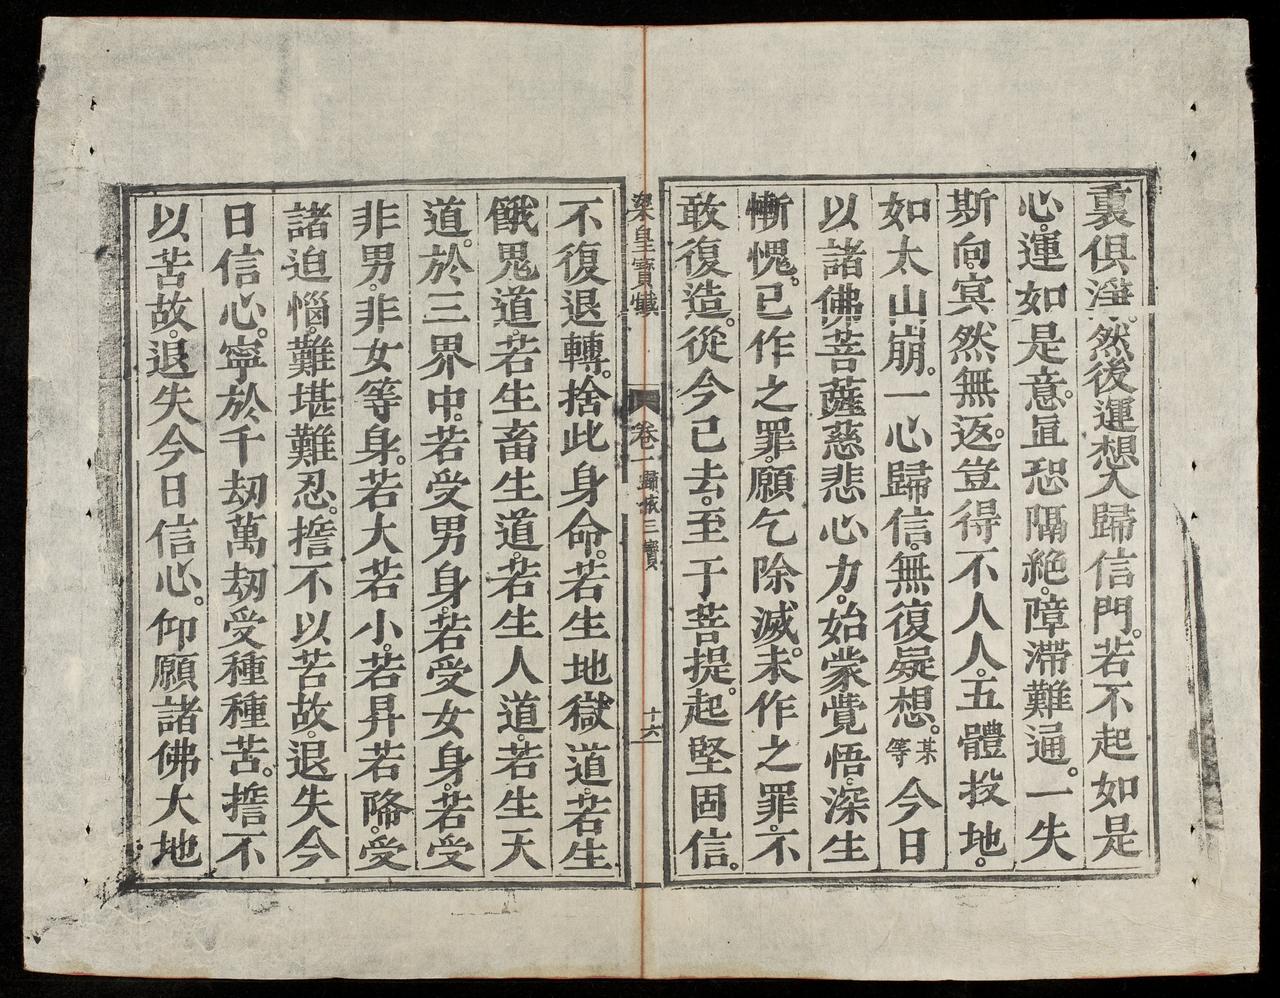 裏俱淨。然後運想入歸信門。若不起如是
心。運如是意。直恐隔絶。障滯難通。一失
斯向。冥然無返。豈得不人人。五體投地。
如太山崩。一心歸信。無復疑想。某等今日
以諸佛菩薩慈悲心力。始蒙覺悟。深生
慚愧。已作之罪。願乞除滅。未作之罪。不
敢復造。從今已去。至于菩提。起堅固信。
梁皇寶懺 卷一 歸依三寶 十六
不復退轉。捨此身命。若生地獄道。若生
餓鬼道。若生畜生道。若生人道。若生天
道。於三界中。若受男身。若受女身。若受
非男。非女等身。若大若小。若昇若降。受
諸迫惱。難堪難忍。擔不以苦故。退失今
日信心。寧於千劫萬劫受種種苦。擔不
以苦故。退失今日信心。仰願諸佛大地